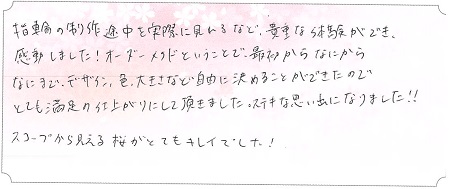 指輪の制作途中を実際に見れるなど、貴重な体験ができ、
感動しました！オーダーメイドということで、最初からなにから
なにまで、デザイン、色、大きさなど自由に決めることができたので
とても満足の仕上がりにして頂きました。ステキな思い出になりました!!
スコープから見える桜がとてもキレイでした！